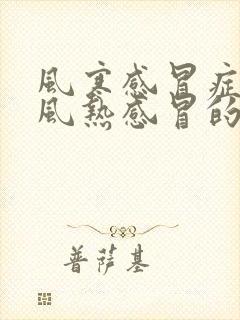 風寒感冒症
風熱感冒的
普薩基